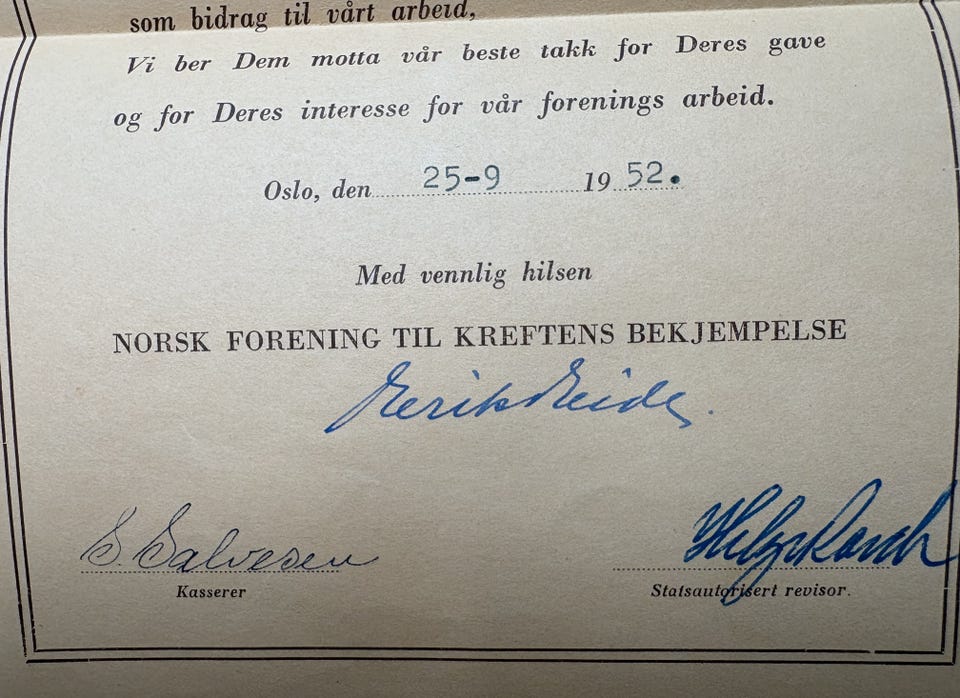 som bidrag til vårt arbeid,
Vi ber Dem motta vår beste takk for Deres gave
og for Deres interesse for vår forenings arbeid.
Oslo, den 25-9 1952.
Med vennlig hilsen
NORSK FORENING TIL KREFTENS BEKJEMPELSE
S. Salvesen
Kasserer
Statsautorisert revisor.